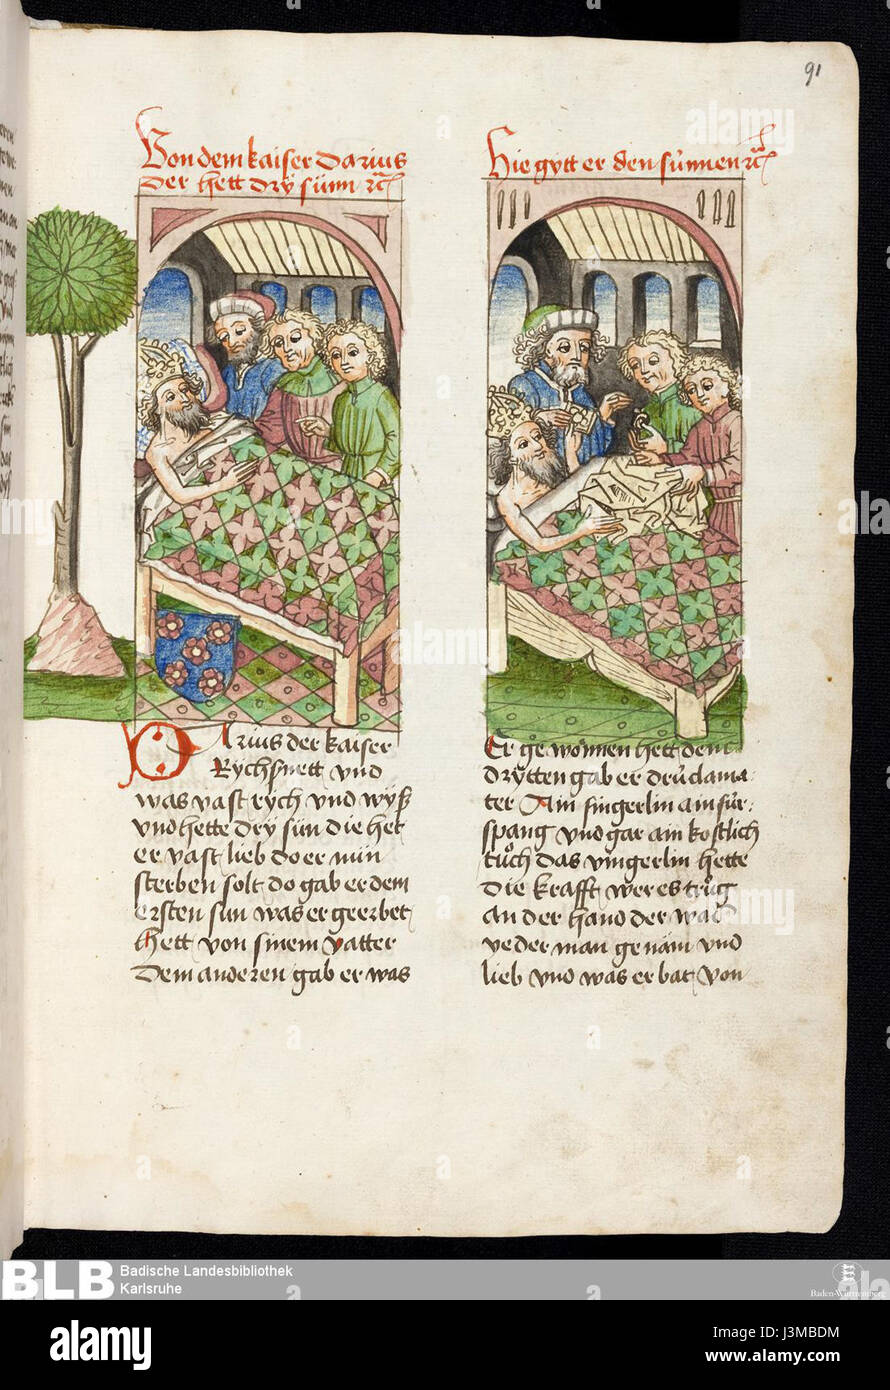 91
Von dem kaiser Darius
Der hett drÿ sünn
Hie gytt er den sünnen
Darius der kaiser
Rychsnett vnd
was vast rych vnd wÿß
vnd hette drÿ sün die het
er vast lieb do er nün
sterben solt do gab er dem
ersten sun was er geerbet
hett von sinem vatter
Dem anderen gab er was
Er gewonnen hett dem
drÿtten gab er drü clama
ter Ain fingerlin ain für
spang vnd gar ain kostlich
tuͦch das vingerlin hette
die krafft wer es truͦg
an der hand der ward
yederman genäm vnd
lieb vnd was er bat von
BLB Badische Landesbibliothek
Karlsruhe
Baden-Württemberg
alamy
Image ID: J3MBDM
www.alamy.com